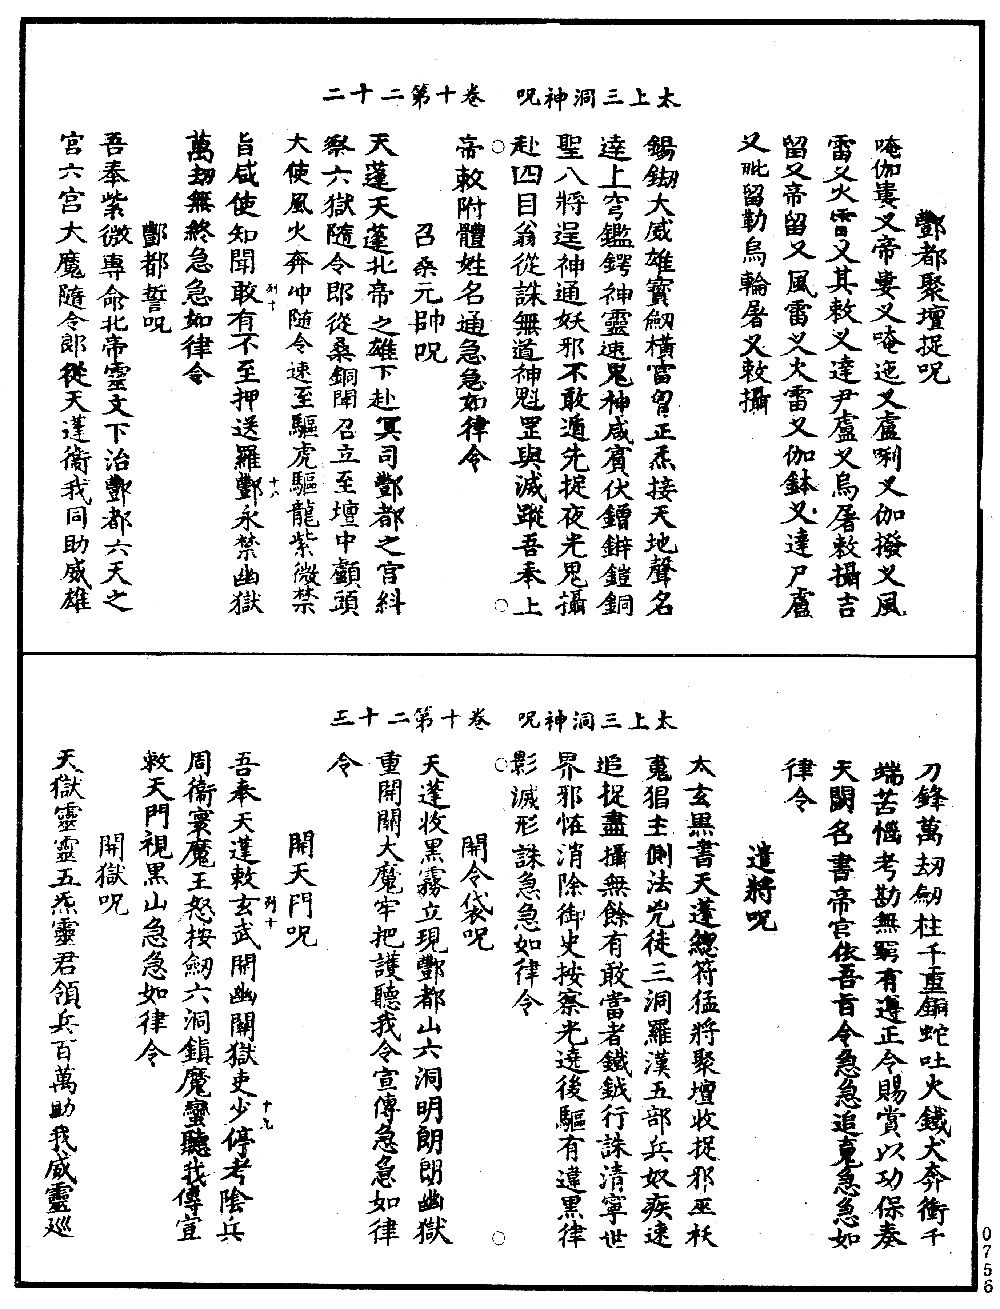 太上三洞神咒　卷十第二十二
酆都聚壇捉咒
唵伽婁叉帝婁叉唵迤叉盧唎叉伽撥叉風
雷叉火雷叉其敕叉達尹盧叉烏屠敕攝吉
留叉帝留叉風雷叉火雷叉伽鉢叉達尸盧
叉毗留勒烏輪屠叉敕攝
錫鍸大威雄寶劒橫富曾正炁接天地聲名
達上穹鑑鍔神靈速鬼神咸賓伏鐕鎃鎧銅
聖八將逞神通妖邪不敢遁先捉夜光鬼攝
赴四目翁從誅無道神魁罡與滅蹤吾奉上
帝敕附體姓名通急急如律令
召桑元帥咒
天蓬天蓬北帝之雄下赴冥司酆都之宫糾
察六獄隨令即從桑銅聞召立至壇中顱頭
大使風火奔冲隨令速至驅虎驅龍紫微禁
旨咸使知聞敢有不至押送羅酆永禁幽獄
萬劫無終急急如律令
列十
十八
酆都誓咒
吾奉紫微專命北帝靈文下治酆都六天之
宫六宫大魔隨令郎從天蓬衛我同助威雄
太上三洞神咒　卷十第二十三
刀鋒萬刼劒柱千重銅蛇吐火鐵犬奔衝千
端苦惱考勘無窮有遵正令賜賞以功保奏
天闕名書帝官依吾旨令急急追𩲸急急如
律令
遣將咒
太玄黑書天蓬總符猛將聚壇收捉邪巫袄
𩲸猖主側法兇徒三洞羅漢五部兵奴疾速
追捉盡攝無餘有敢當者鐵鉞行誅清寧世
界邪恠消除御史按察光遶後驅有違黑律
影滅形誅急急如律令
開令袋咒
天蓬收黑霧立現酆都山六洞明朗朗幽獄
重開關大魔牢把護聽我令宣傳急急如律
令
開天門咒
吾奉天蓬敕玄武開幽關獄吏少停考陰兵
周衛寰魔王怒按劒六洞鎮魔蠻聽我傳宣
敕天門視黑山急急如律令
列十
十九
開獄咒
天獄靈靈五炁靈君領兵百萬助我威靈巡
0756